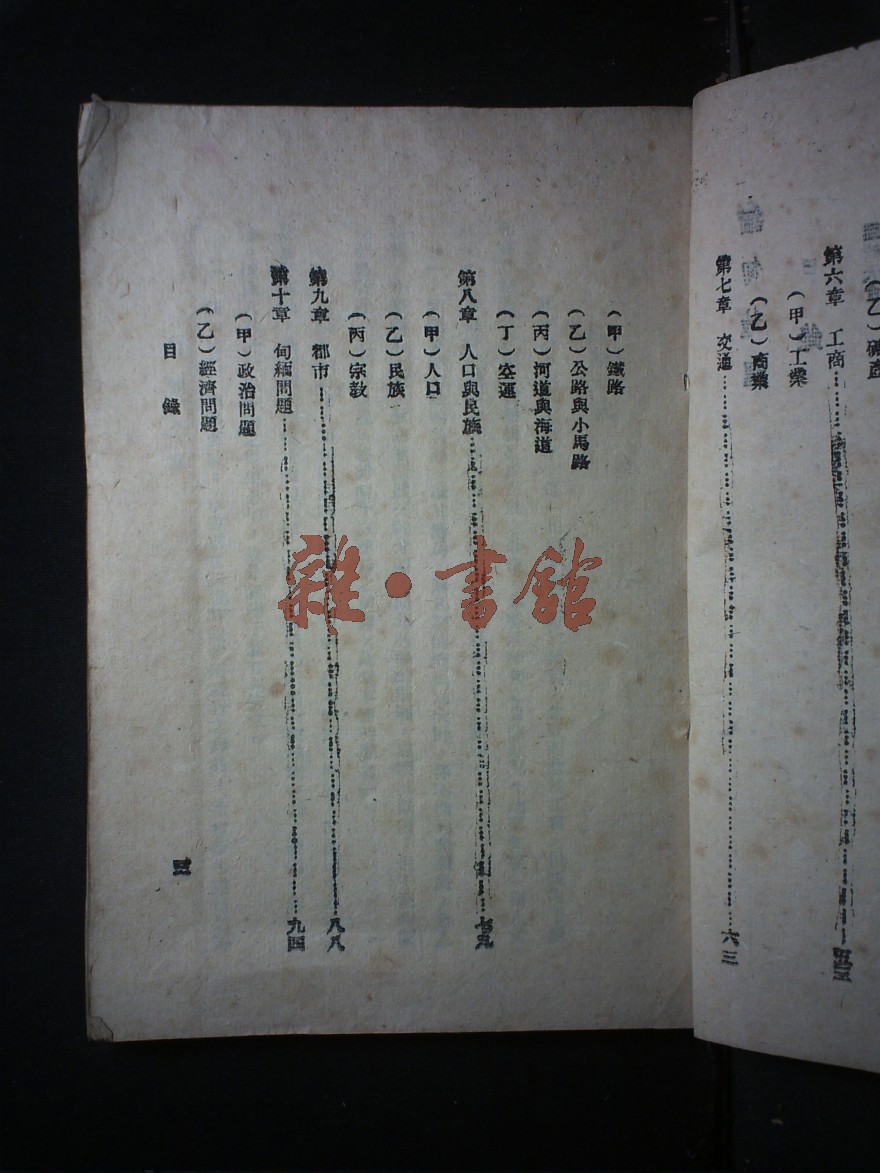 （乙）礦產
第六章　工商……………五三
（甲）工業
（乙）商業
第七章　交通……………六三
（甲）鐵路
（乙）公路與小馬路
（丙）河道與海道
（丁）空運
第八章　人口與民族……………七九
（甲）人口
（乙）民族
（丙）宗教
第九章　都市……………八八
第十章　旬緬問題……………九四
（甲）政治問題
（乙）經濟問題
目錄
雜·書館